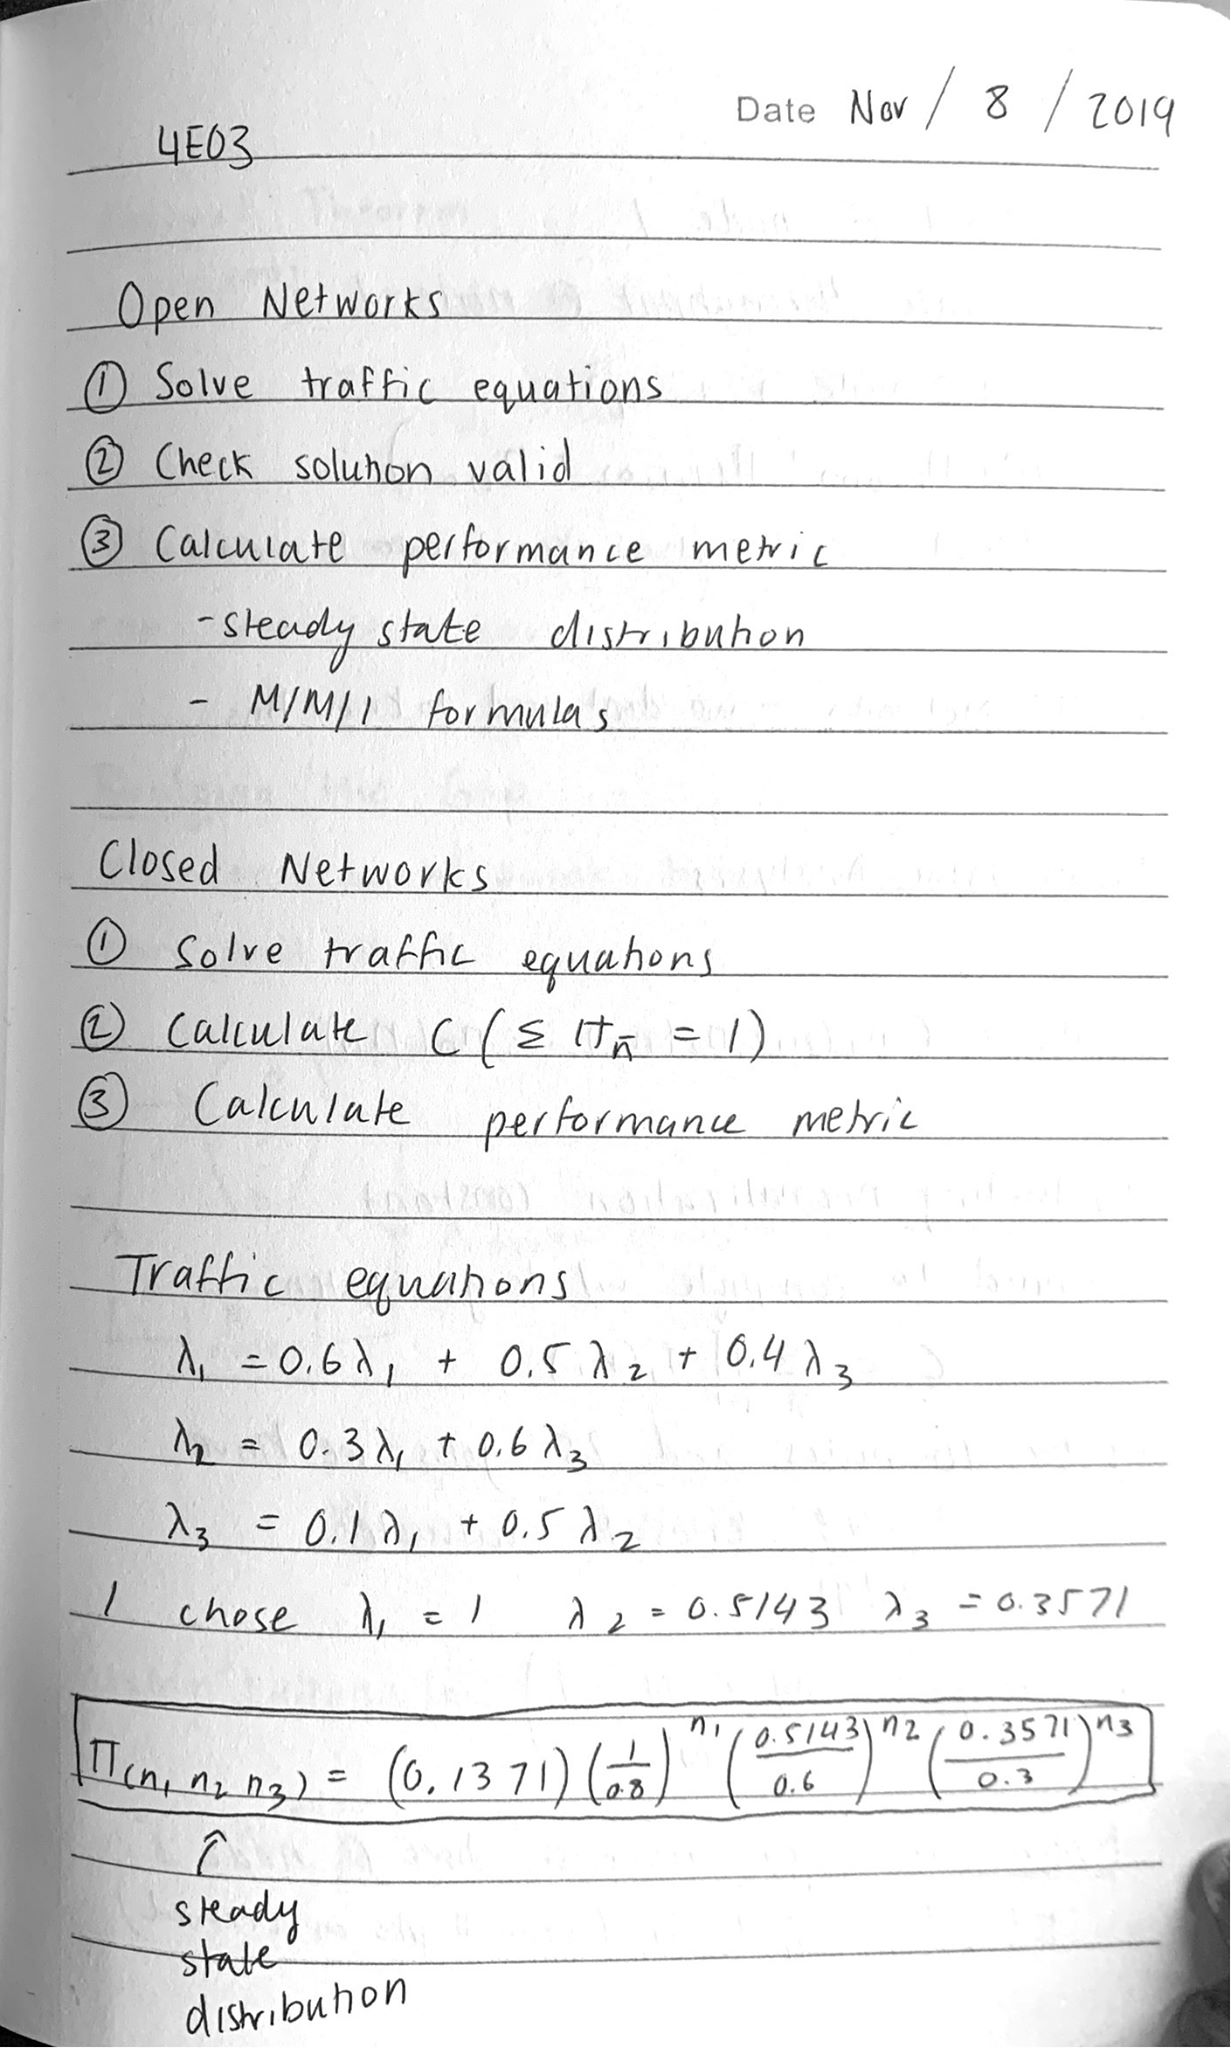 Date Nov / 8 / 2019
4E03
Open Networks
① Solve traffic equations
② Check solution valid
③ Calculate performance metric
- steady state distribution
- M/M/1 formulas
Closed Networks
① Solve traffic equations
② Calculate C (Σ π_n̄ = 1)
③ Calculate performance metric
Traffic equations
λ₁ = 0.6λ₁ + 0.5λ₂ + 0.4λ₃
λ₂ = 0.3λ₁ + 0.6λ₃
λ₃ = 0.1λ₁ + 0.5λ₂
I chose λ₁ = 1 λ₂ = 0.5143 λ₃ = 0.3571
π(n₁ n₂ n₃) = (0.1371)(1/0.8)^n₁ (0.5143/0.6)^n₂ (0.3571/0.3)^n₃
↑
steady
state
distribution